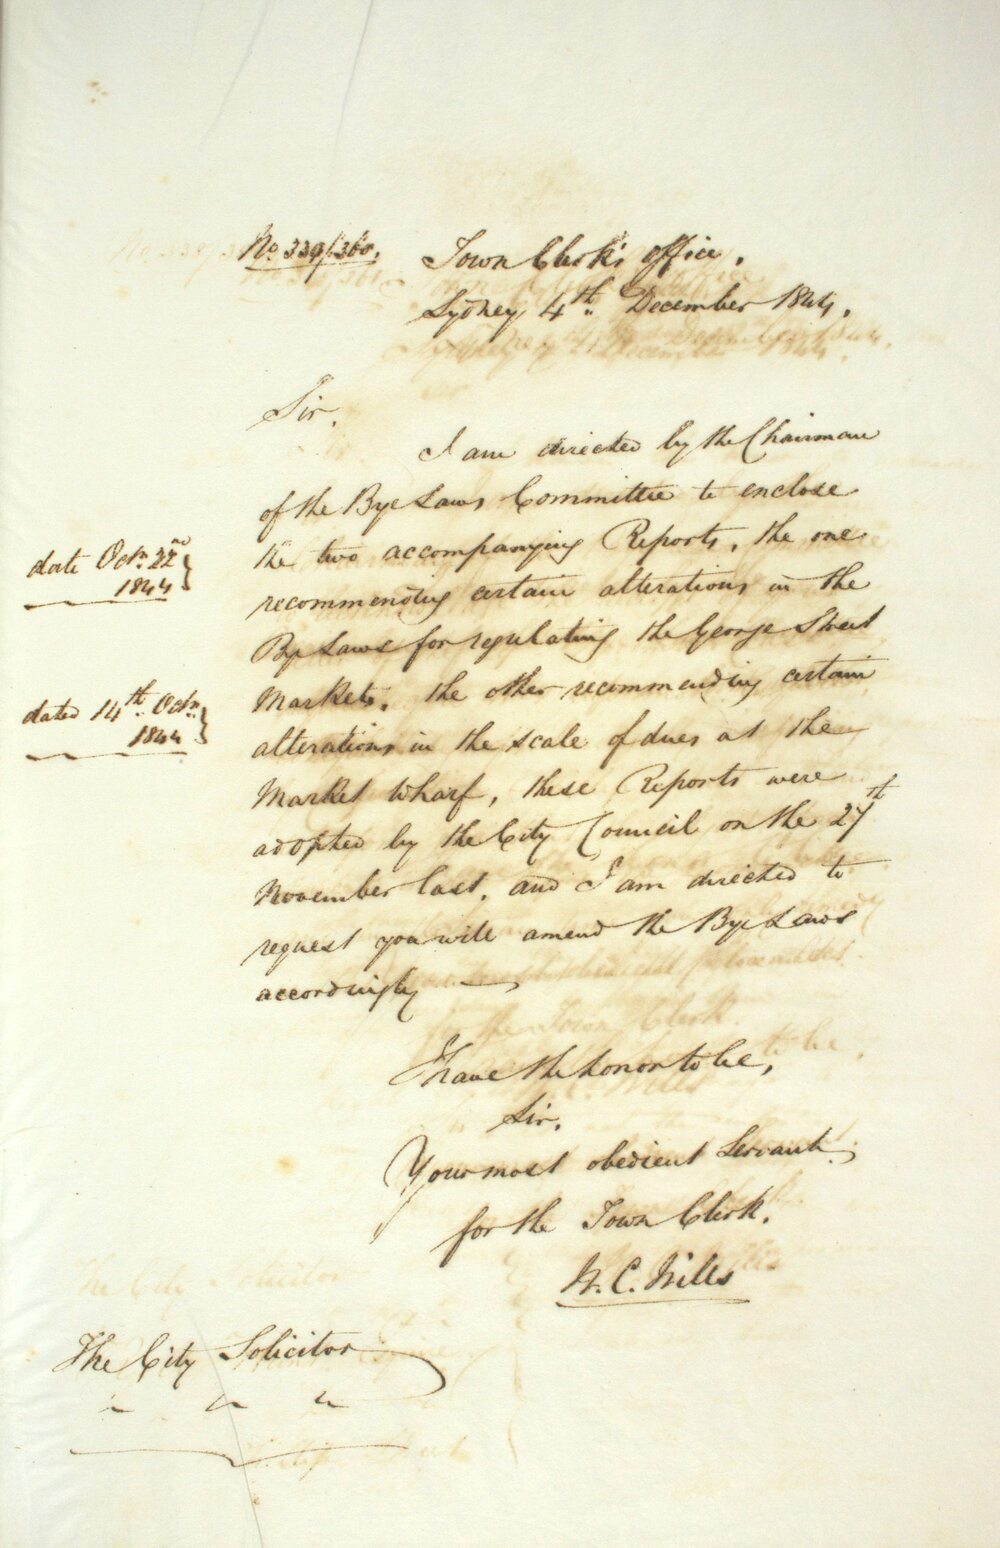 No. 339/360.
Town Clerk's Office.
Sydney 4th December 1844.
Sir,
I am directed by the Chairman
of the Bye Laws Committee to enclose
the two accompanying Reports, the one
recommending certain alterations in the
Bye Laws for regulating the George Street
Markets, the other recommending certain
alterations in the scale of dues at the
Market Wharf, these Reports were
adopted by the City Council on the 27th
November last, and I am directed to
request you will amend the Bye Laws
accordingly —
date Octr. 22nd
1844
dated 14th Octr.
1844
I have the honor to be,
Sir,
Your most obedient Servant,
for the Town Clerk.
W. C. Wills
The City Solicitor
" " "